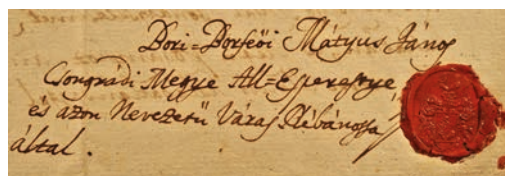 Dori=Dorféői Mátyus János
Csongrádi Megye All-Esperestye,
és azon Nevezetü Város Plébánossa
által.